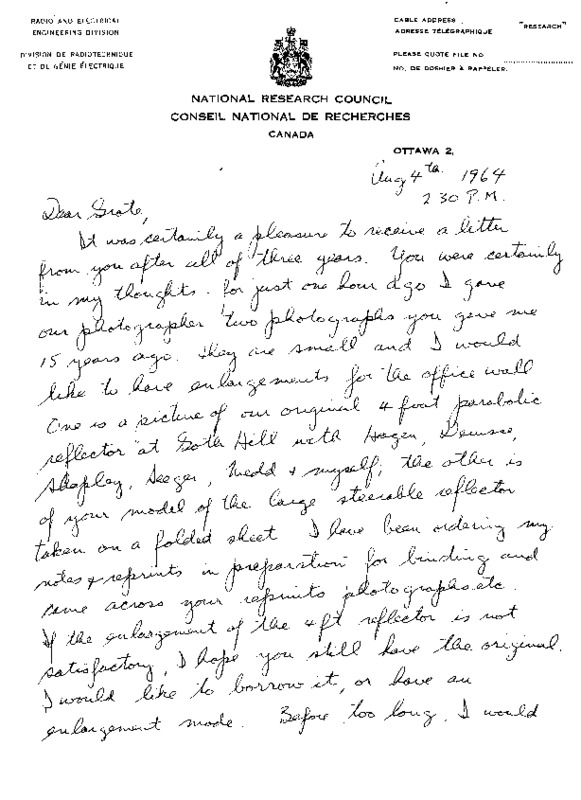 RADIO AND ELECTRICAL
ENGINEERING DIVISION
DIVISION DE RADIOTECHNIQUE
ET DE GÉNIE ÉLECTRIQUE
CABLE ADDRESS
ADRESSE TÉLÉGRAPHIQUE "RESEARCH"
PLEASE QUOTE FILE NO
NO. DE DOSSIER À RAPPELER
NATIONAL RESEARCH COUNCIL
CONSEIL NATIONAL DE RECHERCHES
CANADA
OTTAWA 2,
Aug 4th 1964
2 30 P.M.
Dear Grote,
It was certainly a pleasure to receive a letter
from you after all of three years. You were certainly
in my thoughts. for just one hour ago I gave
our photographer two photographs you gave me
15 years ago. They are small and I would
like to have enlargements for the office wall
One is a picture of our original 4 foot parabolic
reflector at Goth Hill with Hagen, Denisse,
Shapley, Seeger, Medd & myself; the other is
of your model of the large steerable reflector
taken on a folded sheet I have been ordering my
notes & reprints in preparation for binding and
came across your reprints photographs etc.
If the enlargement of the 4ft reflector is not
satisfactory, I hope you still have the original.
I would like to borrow it, or have an
enlargement made. Before too long, I would